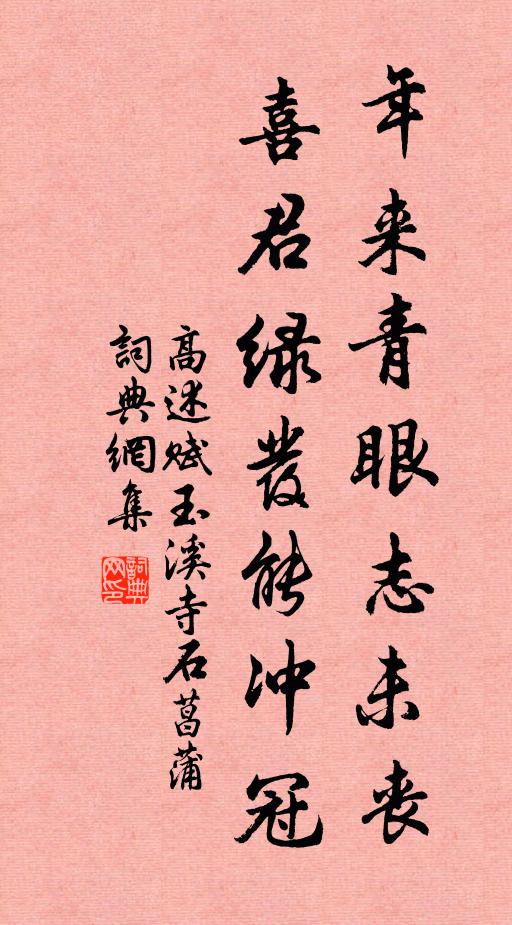 年来青眼志未丧
喜君绿发能冲冠
高述赋玉溪寺石菖蒲
詞典網集
詞典网印